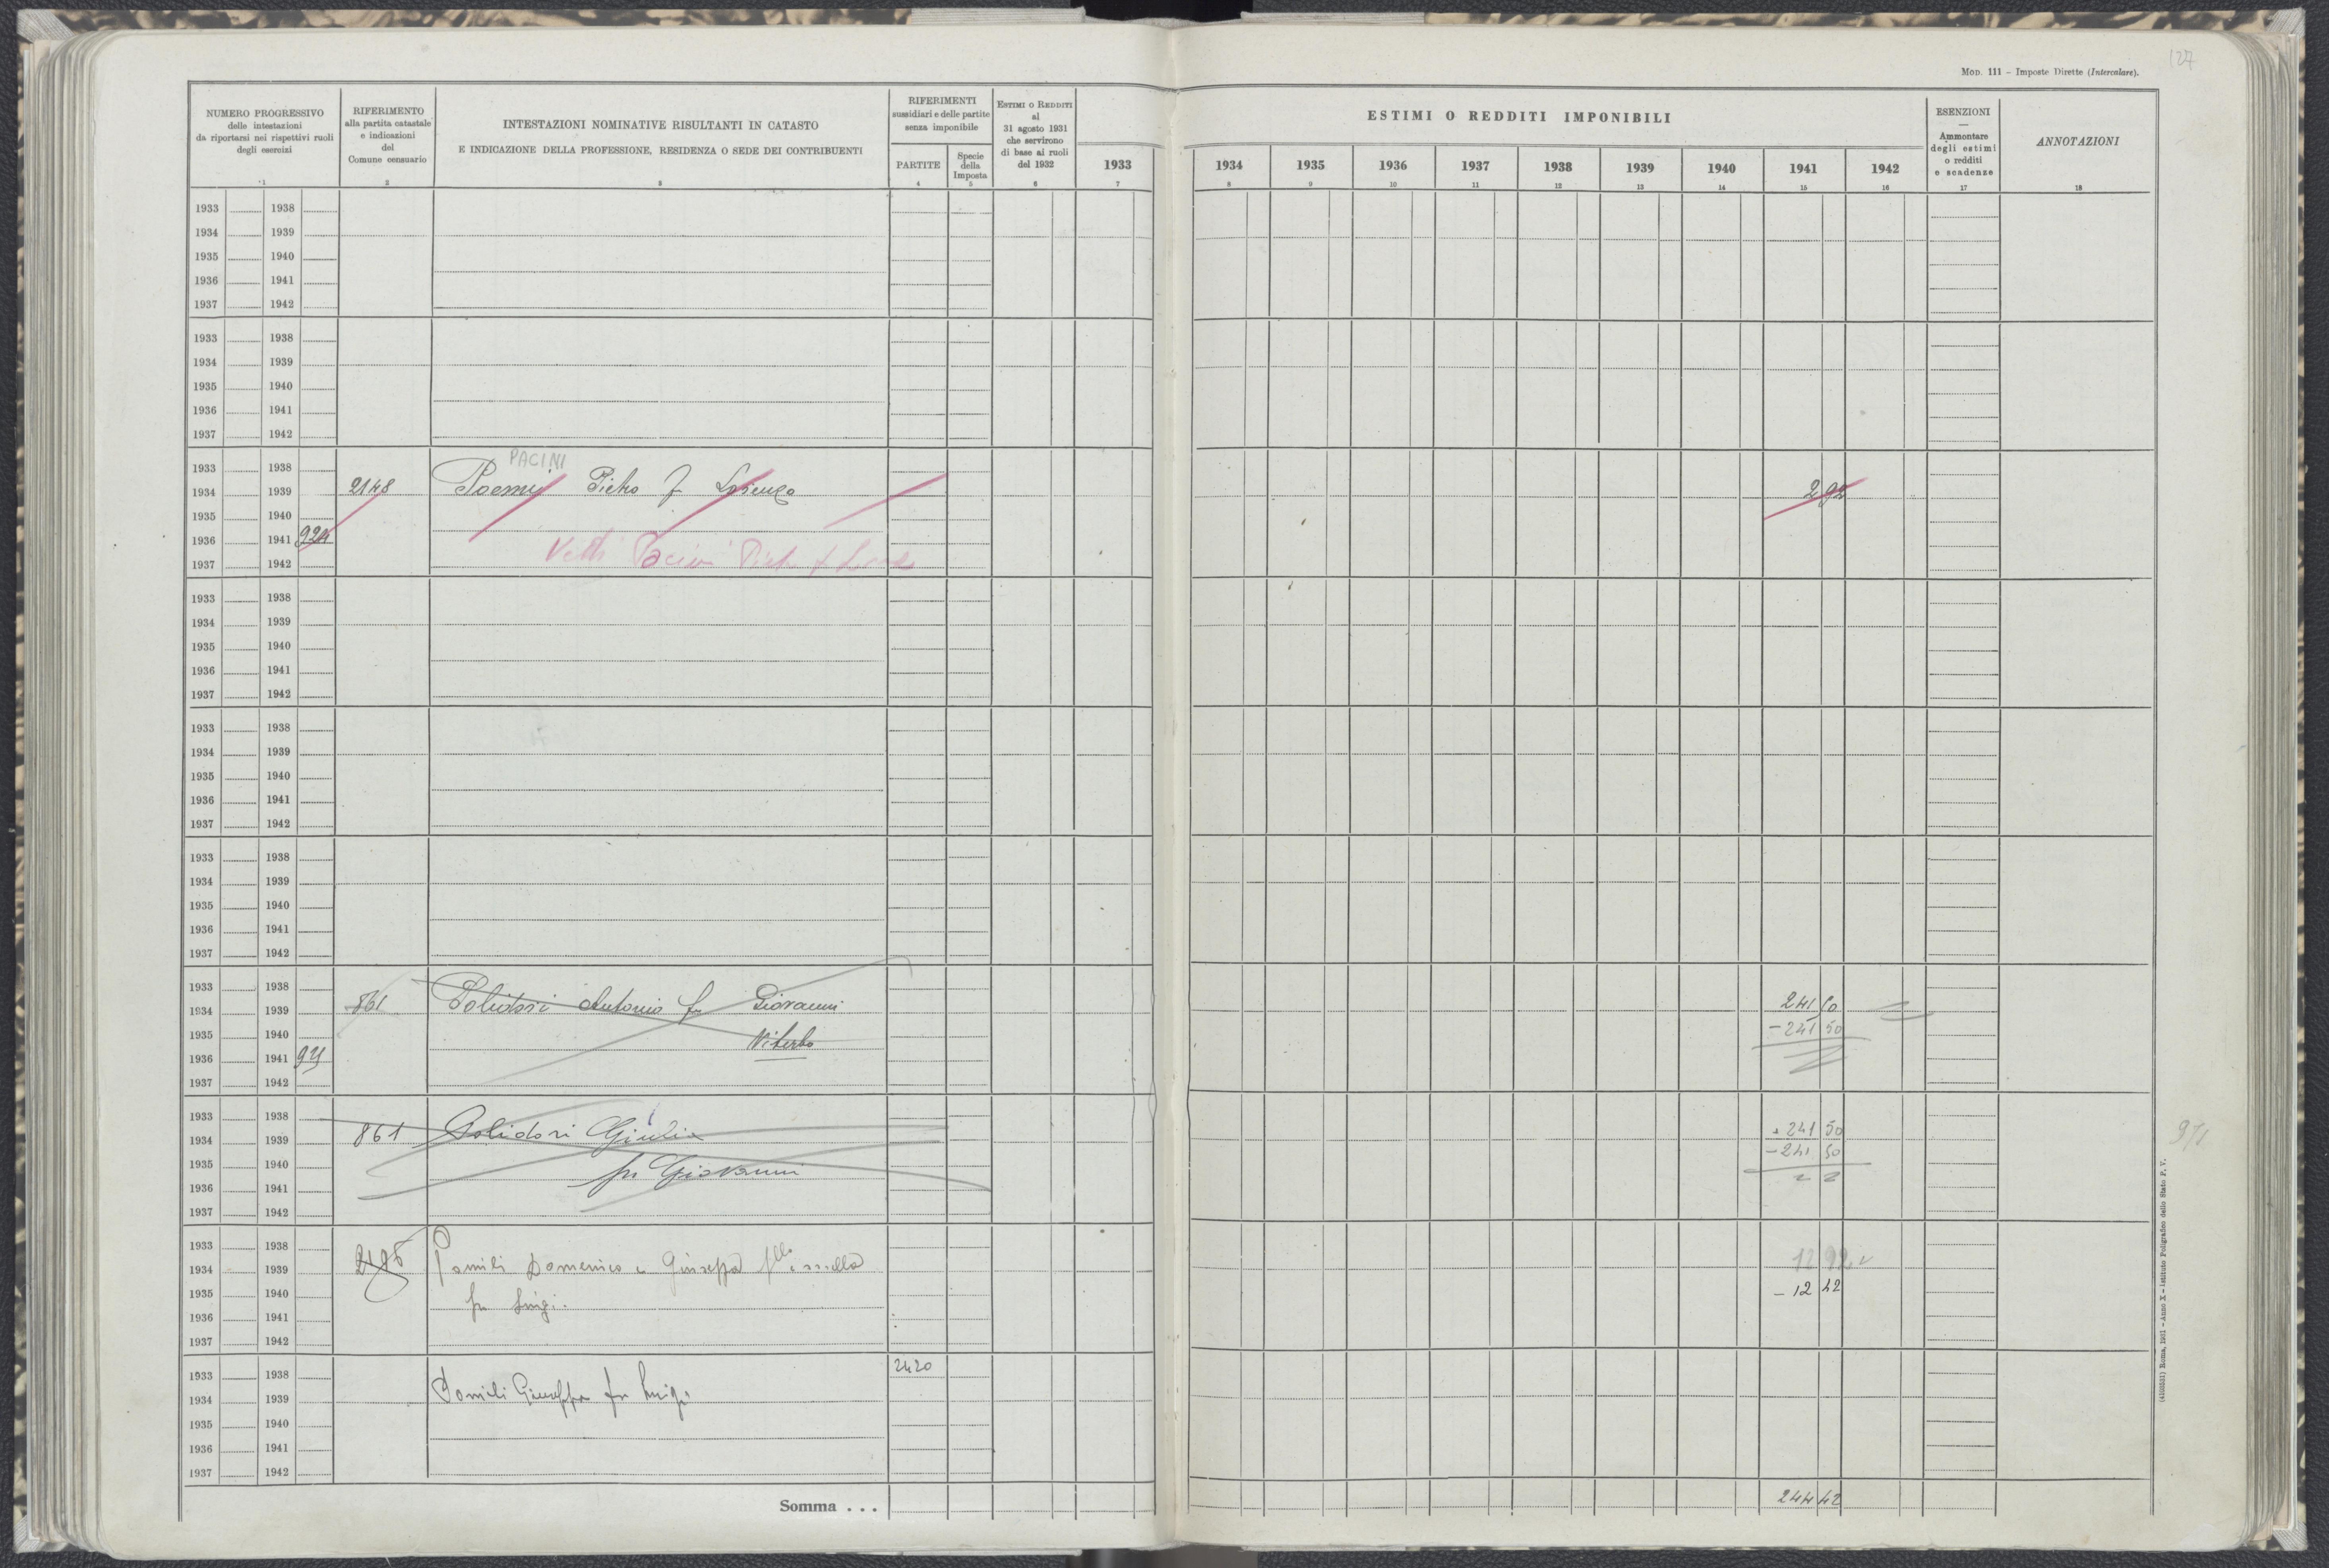 127
MOD. 111 – Imposte Dirette (Intercalare).
NUMERO PROGRESSIVO
delle intestazioni
da riportarsi nei rispettivi ruoli
degli esercizi
1
RIFERIMENTO
alla partita catastale
e indicazioni
del
Comune censuario
2
INTESTAZIONI NOMINATIVE RISULTANTI IN CATASTO
E INDICAZIONE DELLA PROFESSIONE, RESIDENZA O SEDE DEI CONTRIBUENTI
3
RIFERIMENTI
sussidiari e delle partite
senza imponibile
PARTITE
4
Specie
della
Imposta
5
ESTIMI O REDDITI
al
31 agosto 1931
che servirono
di base ai ruoli
del 1932
6
1933
7
ESTIMI O REDDITI IMPONIBILI
1934 1935 1936 1937 1938 1939 1940 1941 1942
8 9 10 11 12 13 14 15 16
ESENZIONI
—
Ammontare
degli estimi
o redditi
e scadenze
17
ANNOTAZIONI
18
1933 1938
1934 1939
1935 1940
1936 1941
1937 1942
1933 1938
1934 1939
1935 1940
1936 1941
1937 1942
PACINI
1933 1938
1934 1939 2148 Pietro f Lorenzo 2 92
1935 1940
1936 1941 924
1937 1942 Pacini
1933 1938
1934 1939
1935 1940
1936 1941
1937 1942
1933 1938
1934 1939
1935 1940
1936 1941
1937 1942
1933 1938
1934 1939
1935 1940
1936 1941
1937 1942
1933 1938
1934 1939 861 Polidori Antonio fu Giovanni 241 50
1935 1940 Viterbo – 241 50
1936 1941
1937 1942
1933 1938
1934 1939 861 Polidori Giulia + 241 50
1935 1940 fu Giovanni – 241 50
1936 1941
1937 1942
1933 1938
1934 1939 Domenico e
1935 1940 fu Luigi – 12 42
1936 1941
1937 1942
2420
1933 1938
1934 1939 Giuseppa fu Luigi
1935 1940
1936 1941
1937 1942
Somma . . . 244 42
(4103531) Roma, 1931 – Anno X – Istituto Poligrafico dello Stato P. V.